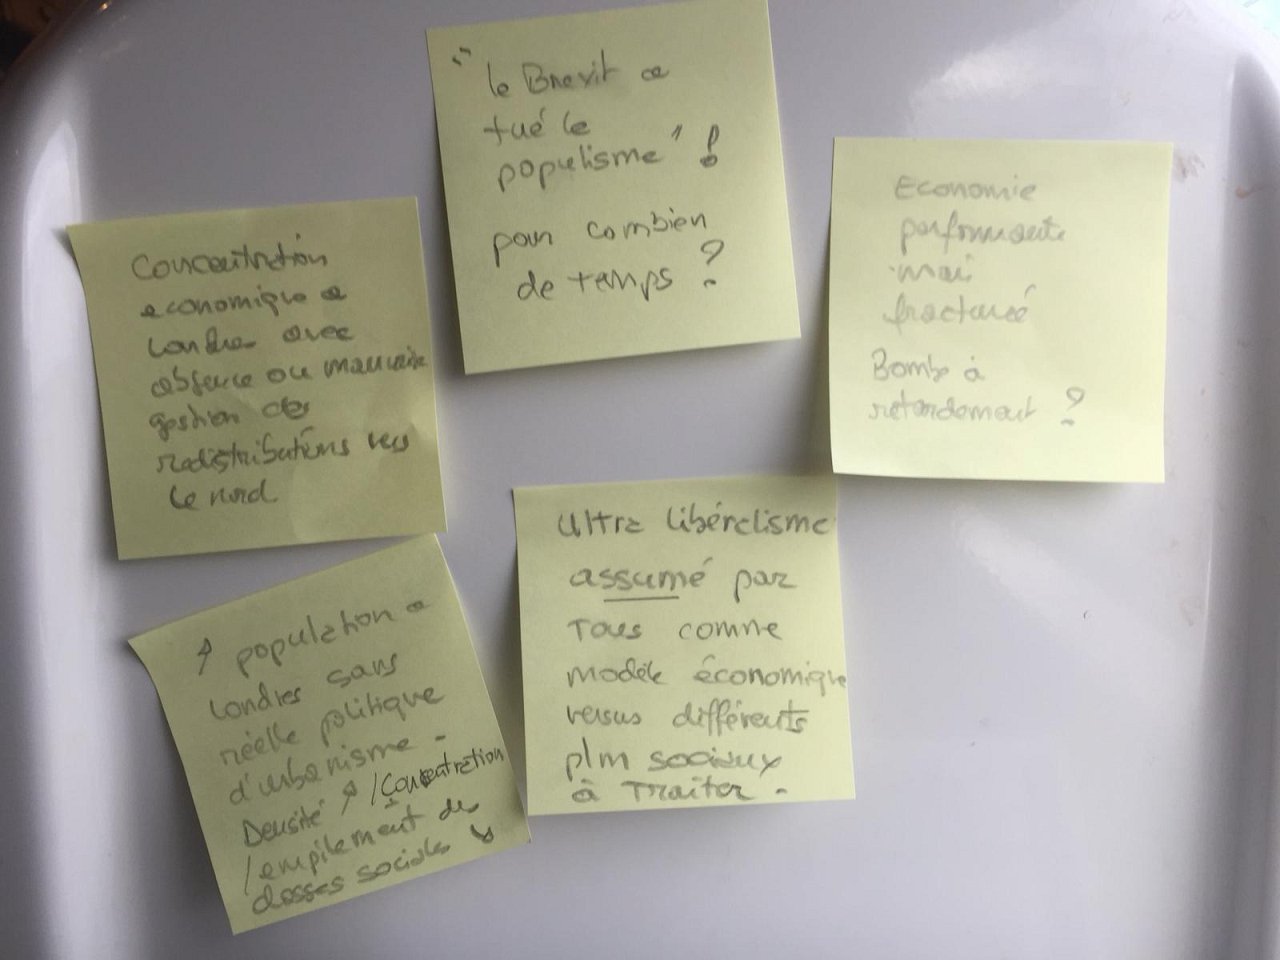 "le Brexit a
tué le
populisme" !
pour combien
de temps ?
Economie
performante
mai
fracturé
Bombe à
retardement ?
Concentration
economique a
Londres avec
absence ou mauvaise
gestion des
redistributions vers
le nord
↑ population a
Londres sans
réelle politique
d'urbanisme -
Densité ↑ / Concentration
/ empilement des
classes sociales ↘
Ultra libéralisme
assumé par
Tous comme
modèle économique
versus différents
plm sociaux
à Traiter.